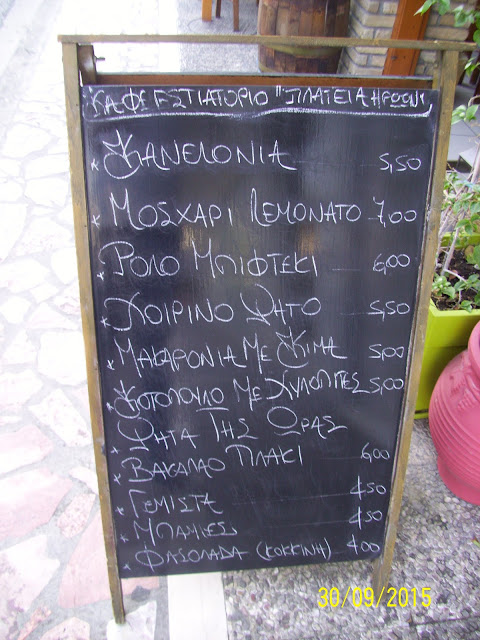 ΚΑΦΕ ΕΣΤΙΑΤΟΡΙΟ "ΠΛΑΤΕΙΑ ΗΡΩΩΝ"
* ΚΑΝΕΛΟΝΙΑ 5,50
* ΜΟΣΧΑΡΙ ΛΕΜΟΝΑΤΟ 7,00
* ΡΟΛΟ ΜΠΙΦΤΕΚΙ 6,00
* ΧΟΙΡΙΝΟ ΨΗΤΟ 5,50
* ΜΑΚΑΡΟΝΙΑ ΜΕ ΚΙΜΑ 5,00
* ΚΟΤΟΠΟΥΛΟ ΜΕ ΧΥΛΟΠΙΤΕΣ 5,00
* ΨΗΤΑ ΤΗΣ ΩΡΑΣ
* ΒΑΚΑΛΑΟ ΠΛΑΚΙ 6,00
* ΓΕΜΙΣΤΑ 4,50
* ΜΠΑΜΙΕΣ 4,50
* ΦΑΣΟΛΑΔΑ (ΚΟΚΚΙΝΗ) 4,00
30/09/2015